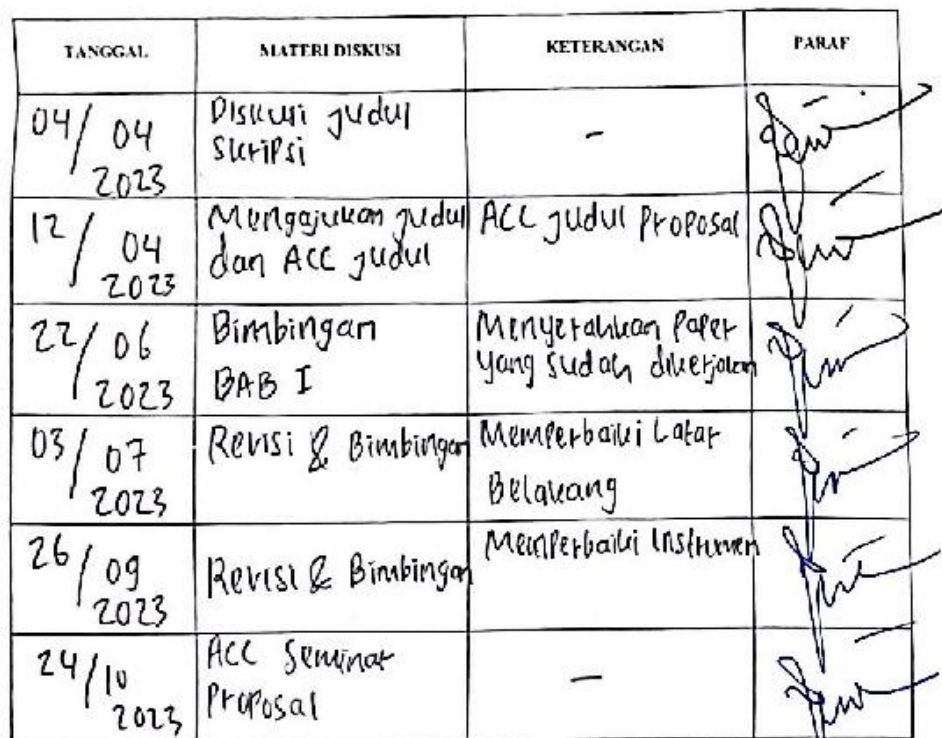 TANGGAL MATERI DISKUSI KETERANGAN PARAF
04/04 2023
Diskusi judul
skripsi
-
12/04 2023
Mengajukan judul
dan ACC judul
ACC judul proposal
22/06 2023
Bimbingan
BAB I
Menyerahkan paper
yang sudah dikerjakan
03/07 2023
Revisi & Bimbingan
Memperbaiki Latar
Belakang
26/09 2023
Revisi & Bimbingan
Memperbaiki Instrumen
24/10 2023
ACC Seminar
Proposal
-